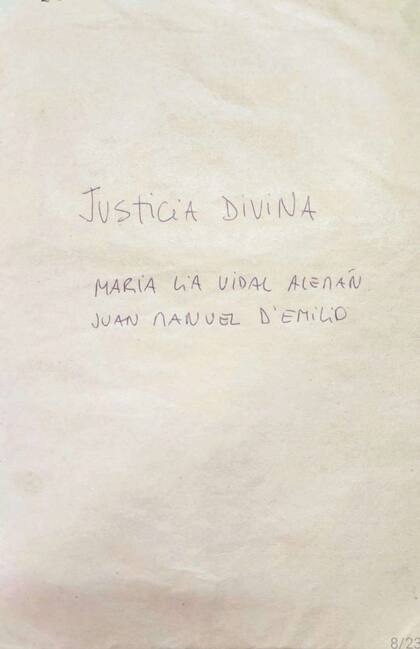 JUSTICIA DIVINA
MARIA LIA VIDAL ALEMÁN
JUAN MANUEL D'EMILIO
8/23